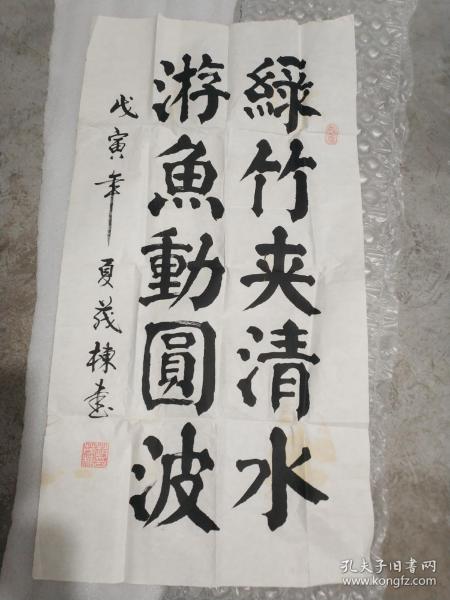 綠竹夹清水
游魚動圓波
戊寅年 夏茂棟書
孔夫子旧书网
www.kongfz.com